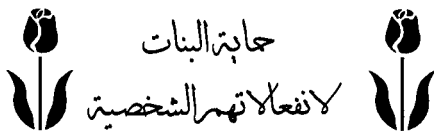 حماية البنات
لانفعالاتهم الشخصية